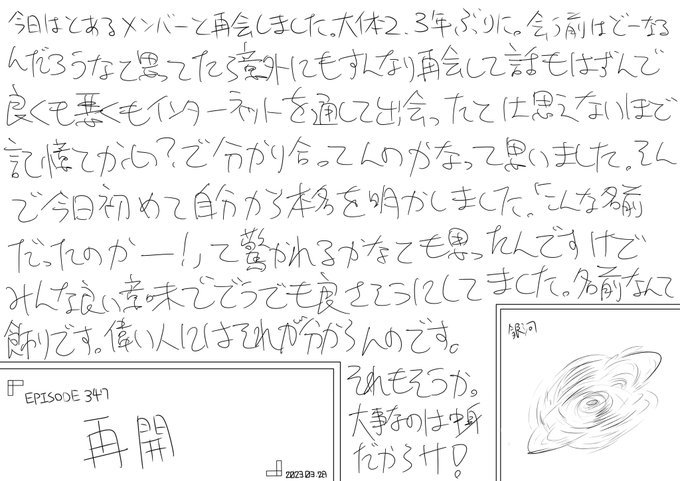 今日はとあるメンバーと再会しました。大体2、3年ぶりに。会う前はどーなる
んだろうなって思ってたら意外にもすんなり再会して話もはずんで
良くも悪くもインターネットを通して出会ったとは思えないほど
記憶とか心?で分かり合ってんのかなって思いました。そん
で今日初めて自分から本名を明かしました。「こんな名前
だったのかー!」って驚かれるかなとも思ったんですけど
みんな良い意味でどうでも良さそうにしてました。名前なんて
飾りです。偉い人にはそれが分からんのです。
それもそうか。
大事なのは中身
だからサ!
EPISODE 347
再開
2023.03.28
銀河